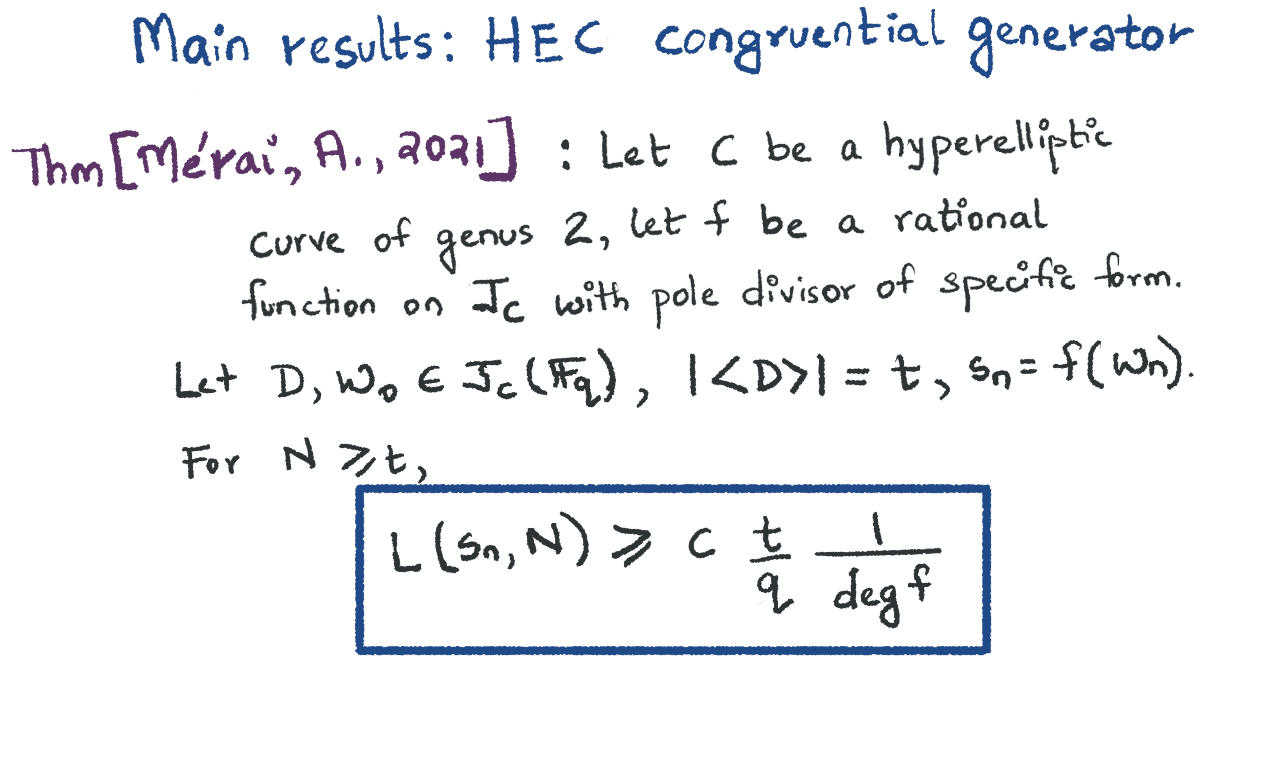 Main results: HEC congruential generator
Thm [Mérai, A., 2021] : Let C be a hyperelliptic
curve of genus 2, let f be a rational
function on J_C with pole divisor of specific form.
Let D, W_0 ∈ J_C(𝔽_q), |<D>| = t, s_n = f(W_n).
For N ⩾ t,
L(s_n, N) ⩾ c t/q 1/deg f